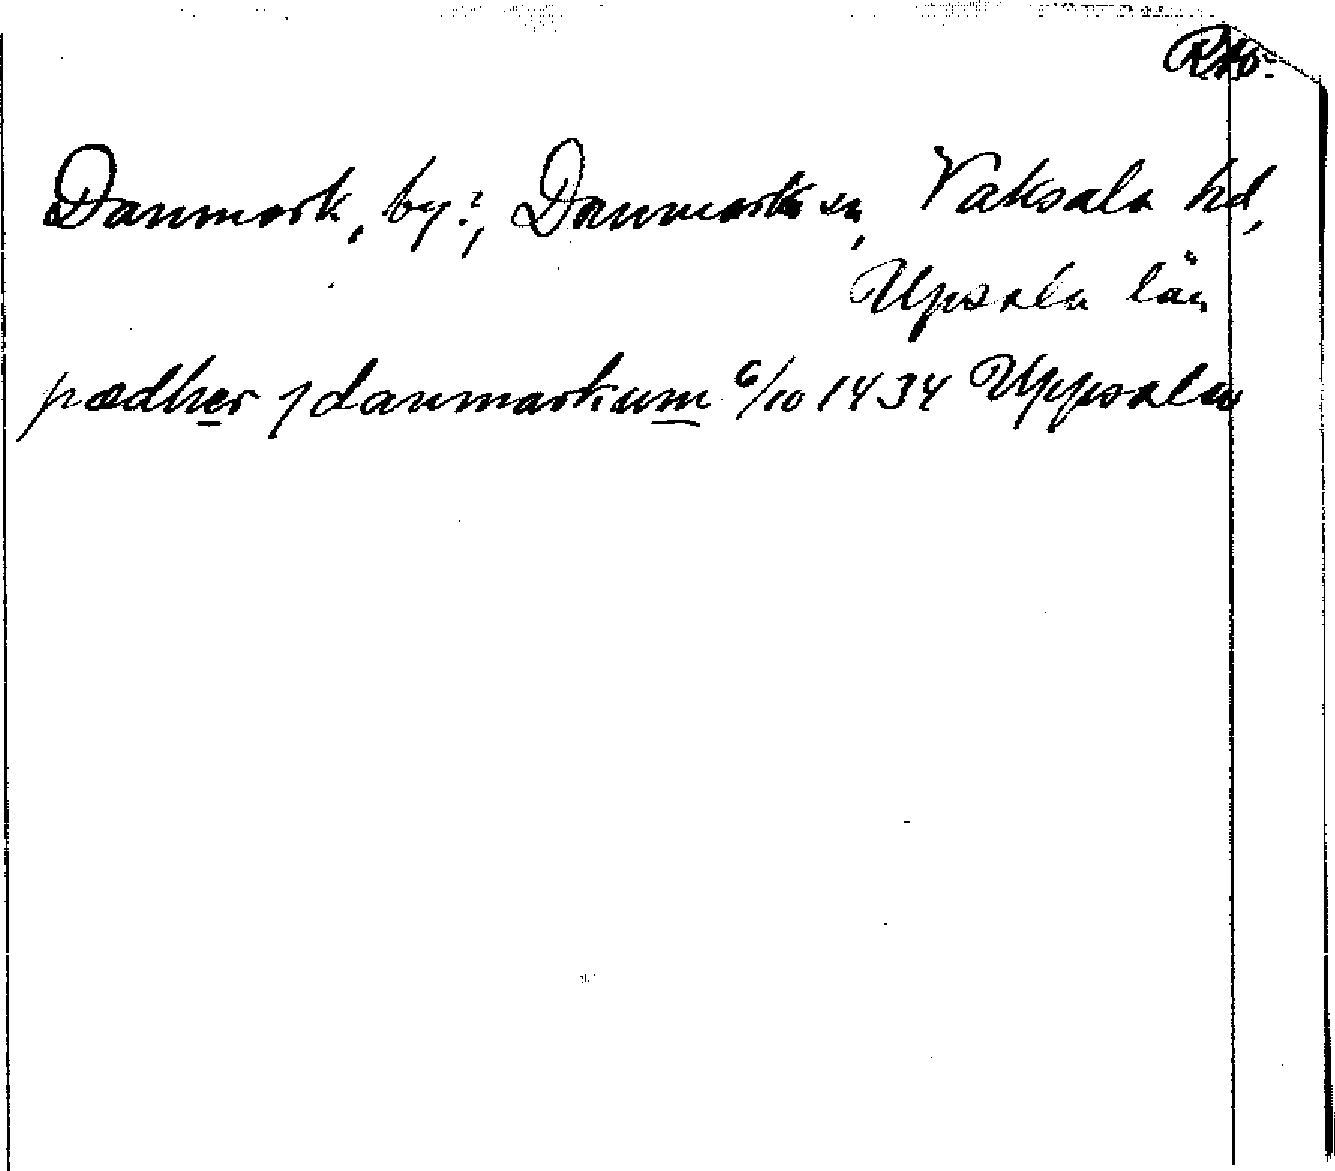 RAÖ.
Danmark, by:, Danmarks sn, Vaksala hd,
Upsala län
pædher j danmarkum 6/10 1434 Uppsala